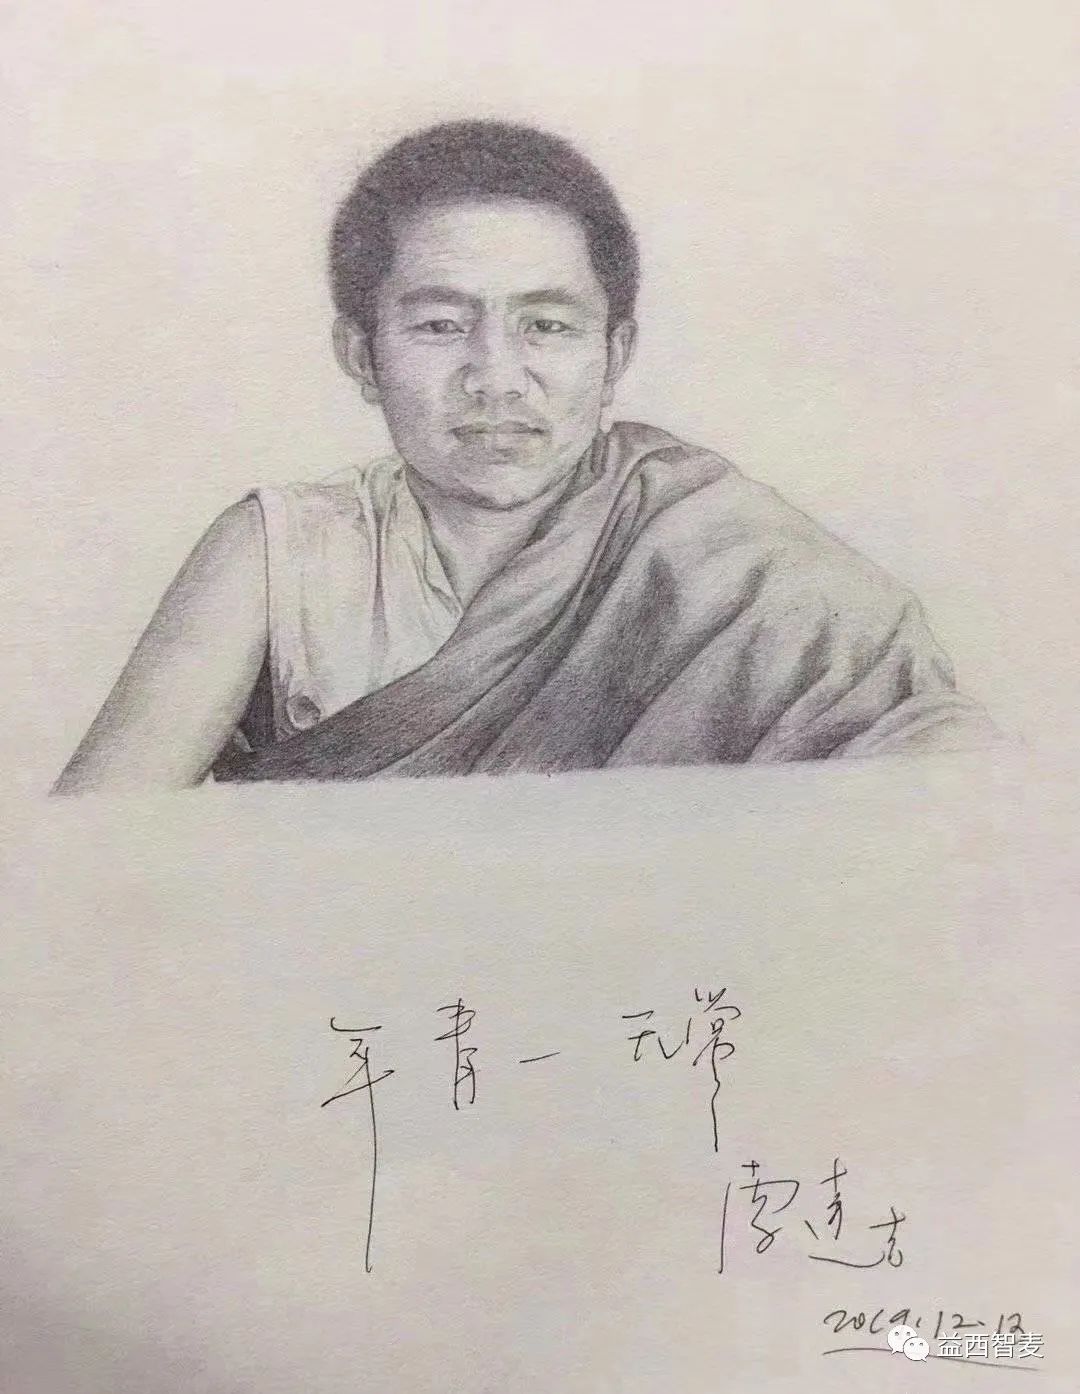 年青一无常
索达吉
2019.12.12
益西智麦